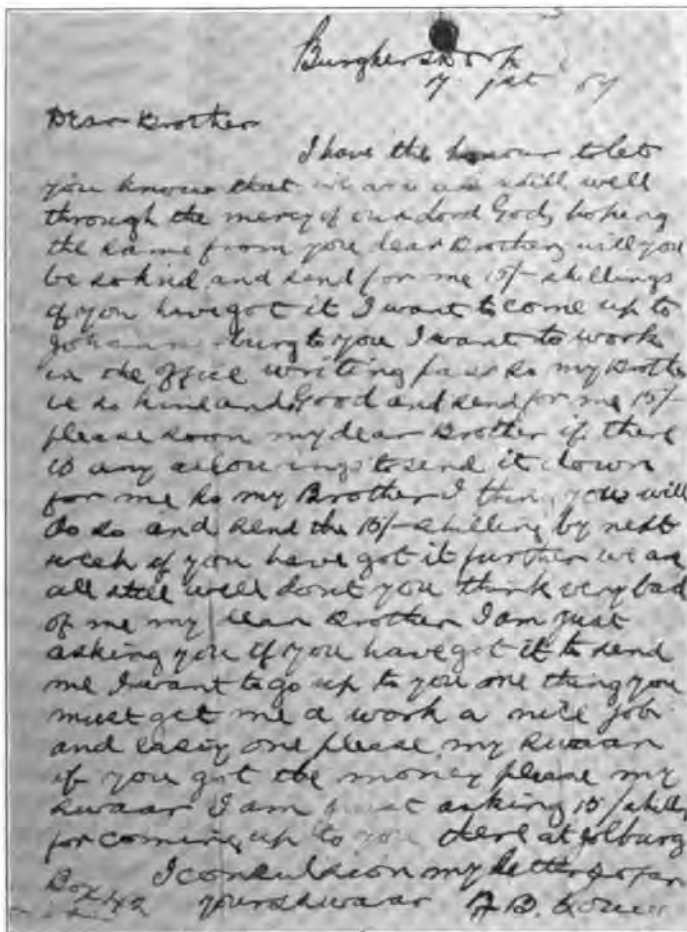 Burghersdorp
Dear Brother
I have the honour to let
you know that we are all still well
through the mercy of our Lord God, hoping
the same from you dear Brother, will you
be so kind and send for me 15/- skillings
if you have got it I want to come up to
burg to you I want to work
in the office writing pass so my Brother
be so kind and Good and send for me 15/-
please soon my dear Brother if there
is any allowings to send it down
for me so my Brother I think you will
do so and send the 15/- skilling by next
week if you have got it further we are
all still well dont you think very bad
of me my dear Brother I am just
asking you if you have got it to send
me I want to go up to you one thing you
must get me a work a nice job
and easy one please my swaar
if you got the money please my
swaar I am just asking 15/ skilling
for coming up to you there at Joburg
I conculsion my letter so far
Box 42 yours swaar A B.